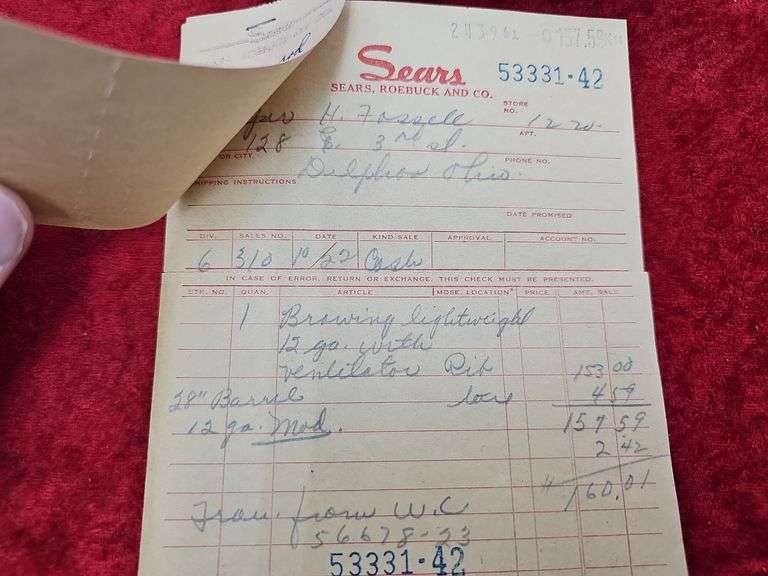 157.59
Sears
53331·42
SEARS, ROEBUCK AND CO.
STORE NO. 1220
H. Fossell
APT.
128 E. 3rd st.
OR CITY
PHONE NO.
Delphos Ohio.
SHIPPING INSTRUCTIONS
DATE PROMISED
DIV. SALES NO. DATE KIND SALE APPROVAL ACCOUNT NO.
6 310 10/22 Cash
IN CASE OF ERROR, RETURN OR EXCHANGE, THIS CHECK MUST BE PRESENTED.
STK. NO. QUAN. ARTICLE MDSE. LOCATION PRICE AMT. SALE
1 Browing lightweight
12 ga. with
ventilator Rib 153 00
28" Barrel 4 59
12 ga. Mod. 157 59
2 42
160.01
Tran. from W.C
56678-23
53331·42